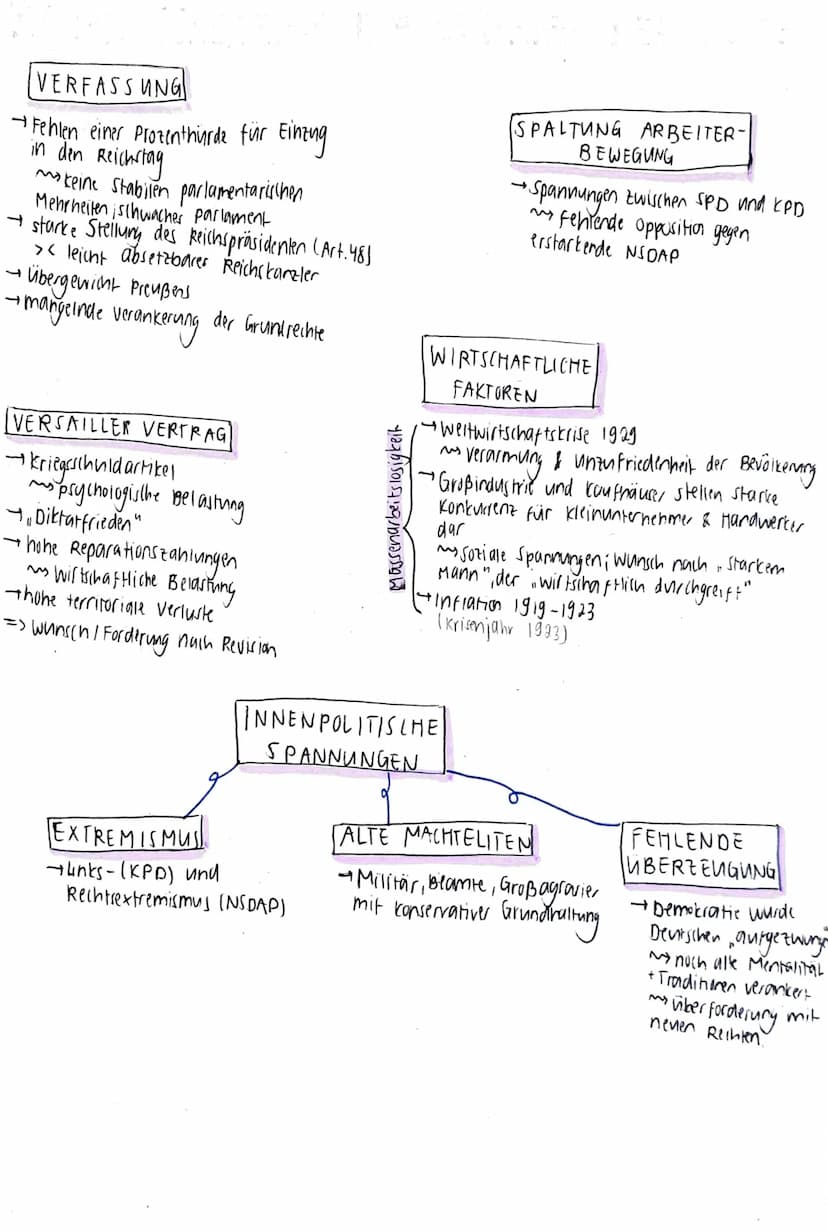 VERFASSUNG
→ Fehlen einer Prozenthürde für Einzug
in den Reichstag
⇝ keine stabilen parlamentarischen
Mehrheiten; schwaches Parlament
→ starke Stellung des Reichspräsidenten (Art. 48)
>< leicht absetzbarer Reichskanzler
→ Übergewicht Preußens
→ mangelnde Verankerung der Grundrechte
SPALTUNG ARBEITER-
BEWEGUNG
→ Spannungen zwischen SPD und KPD
⇝ fehlende Opposition gegen
erstarkende NSDAP
VERSAILLER VERTRAG
→ Kriegsschuldartikel
⇝ psychologische Belastung
→ „Diktatfrieden"
→ hohe Reparationszahlungen
⇝ wirtschaftliche Belastung
→ hohe territoriale Verluste
=> Wunsch / Forderung nach Revision
WIRTSCHAFTLICHE
FAKTOREN
Massenarbeitslosigkeit
→ Weltwirtschaftskrise 1929
⇝ Verarmung & Unzufriedenheit der Bevölkerung
→ Großindustrie und Kaufhäuser stellen starke
Konkurrenz für Kleinunternehmer & Handwerker
dar
⇝ soziale Spannungen; Wunsch nach „starkem
Mann", der „wirtschaftlich durchgreift"
→ Inflation 1919-1923
(Krisenjahr 1923)
INNENPOLITISCHE
SPANNUNGEN
EXTREMISMUS
→ Links- (KPD) und
Rechtsextremismus (NSDAP)
ALTE MACHTELITEN
→ Militär, Beamte, Großagrarier
mit konservativer Grundhaltung
FEHLENDE
ÜBERZEUGUNG
→ Demokratie wurde
Deutschen „aufgezwung
⇝ noch alte Mentalität
+ Traditionen verankert
⇝ Überforderung mit
neuen Rechten